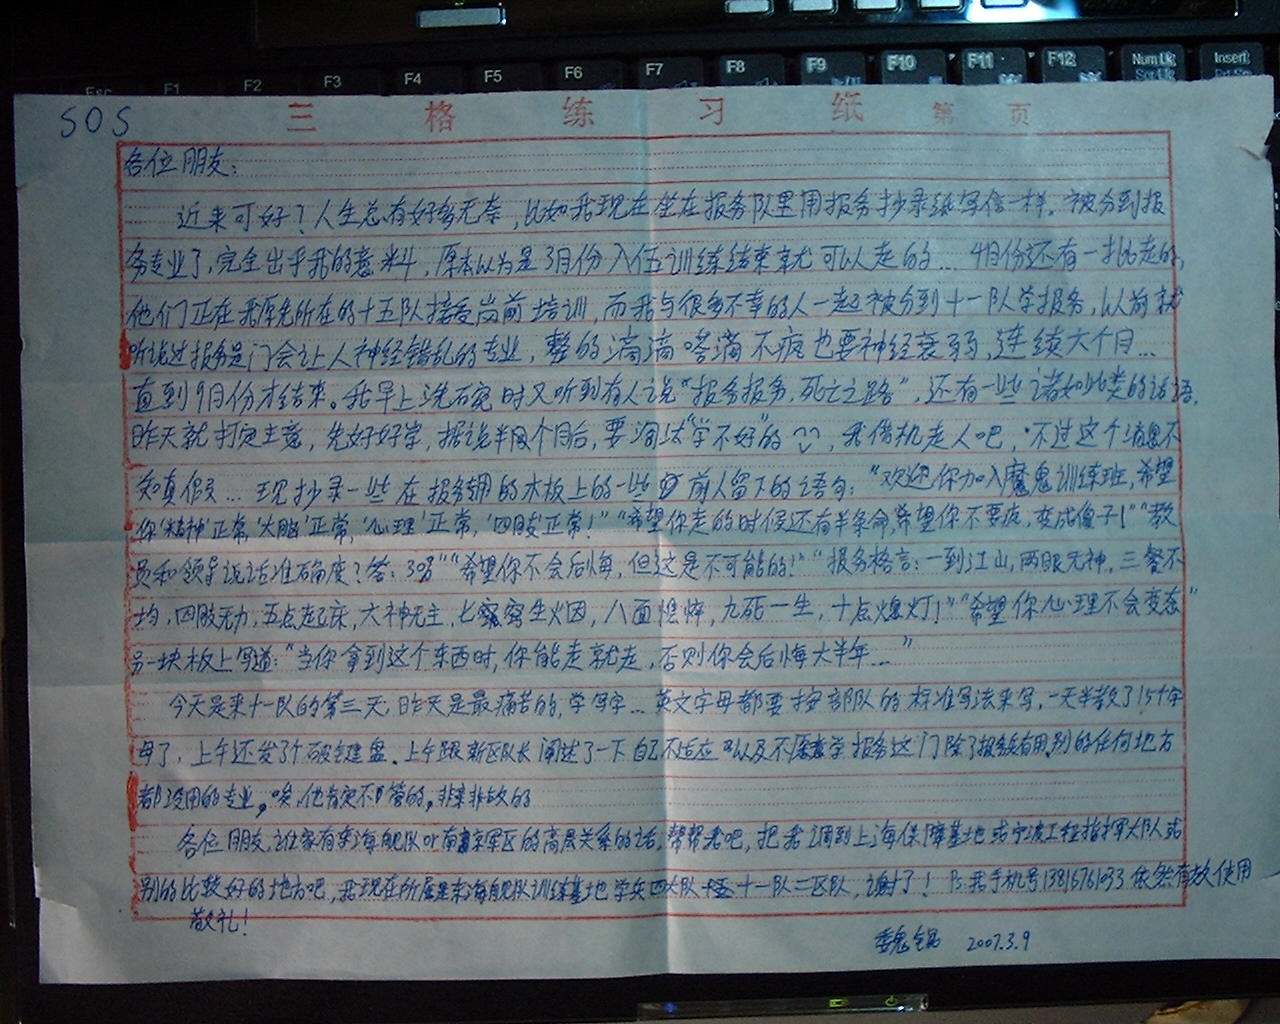 Esc F1 F2 F3 F4 F5 F6 F7 F8 F9 F10 F11 F12 Num Lk Scr Lk Insert
SOS
三格练习纸 第 页
各位朋友：
近来可好？人生总有好多无奈，比如我现在坐在报务队里用报务抄录纸写信一样。被分到报
务专业了，完全出乎我的意料，原本以为是3月份入伍训练结束就可以走的…4月份还有一批走的，
他们正在我原先所在的十五队接受岗前培训，而我与很多不幸的人一起被分到十一队学报务，以前就
听说过报务是门会让人神经错乱的专业，整的滴滴嗒滴不疯也要神经衰弱，连续六个月…
直到9月份才结束。我早上洗碗时又听到有人说“报务报务，死亡之路”，还有一些诸如此类的话语，
昨天就打定主意，先好好学，据说半个月后，要淘汰“学不好”的，我借机走人吧，不过这个消息不
知真假…现抄录一些在报务用的木板上的一些前人留下的语句：“欢迎你加入魔鬼训练班，希望
你‘精神’正常，‘大脑’正常，‘心理’正常，‘四肢’正常！”“希望你走的时候还有半条命，希望你不要疯，变成傻子！”“教
员和领导说话准确度？答：3%”“希望你不会后悔，但这是不可能的！”“报务格言：一到江山，两眼无神，三餐不
均，四肢无力，五点起床，六神无主，七窍生火因，八面憔悴，九死一生，十点熄灯！”“希望你心理不会变态”
另一块板上写道：“当你拿到这个东西时，你能走就走，否则你会后悔大半年…”
今天是来十一队的第三天，昨天是最痛苦的，学写字…英文字母都要按部队的标准写法来写，一天半教了15个字
母了，上午还发了个破键盘。上午跟新区队长阐述了一下自己不适应以及不愿意学报务这门除了报务兵有用，别的任何地方
都没用的专业，唉，他肯定不管的，非亲非故的
各位朋友，谁家有东海舰队or南京军区的高层关系的话，帮帮我吧，把我调到上海保障基地或宁波工程指挥大队或
别的比较好的地方吧，我现在所属是东海舰队训练基地学兵四大队十一队二区队，谢了！Ps：我手机号13816761033依然有效使用
敬礼！
魏 2007.3.9